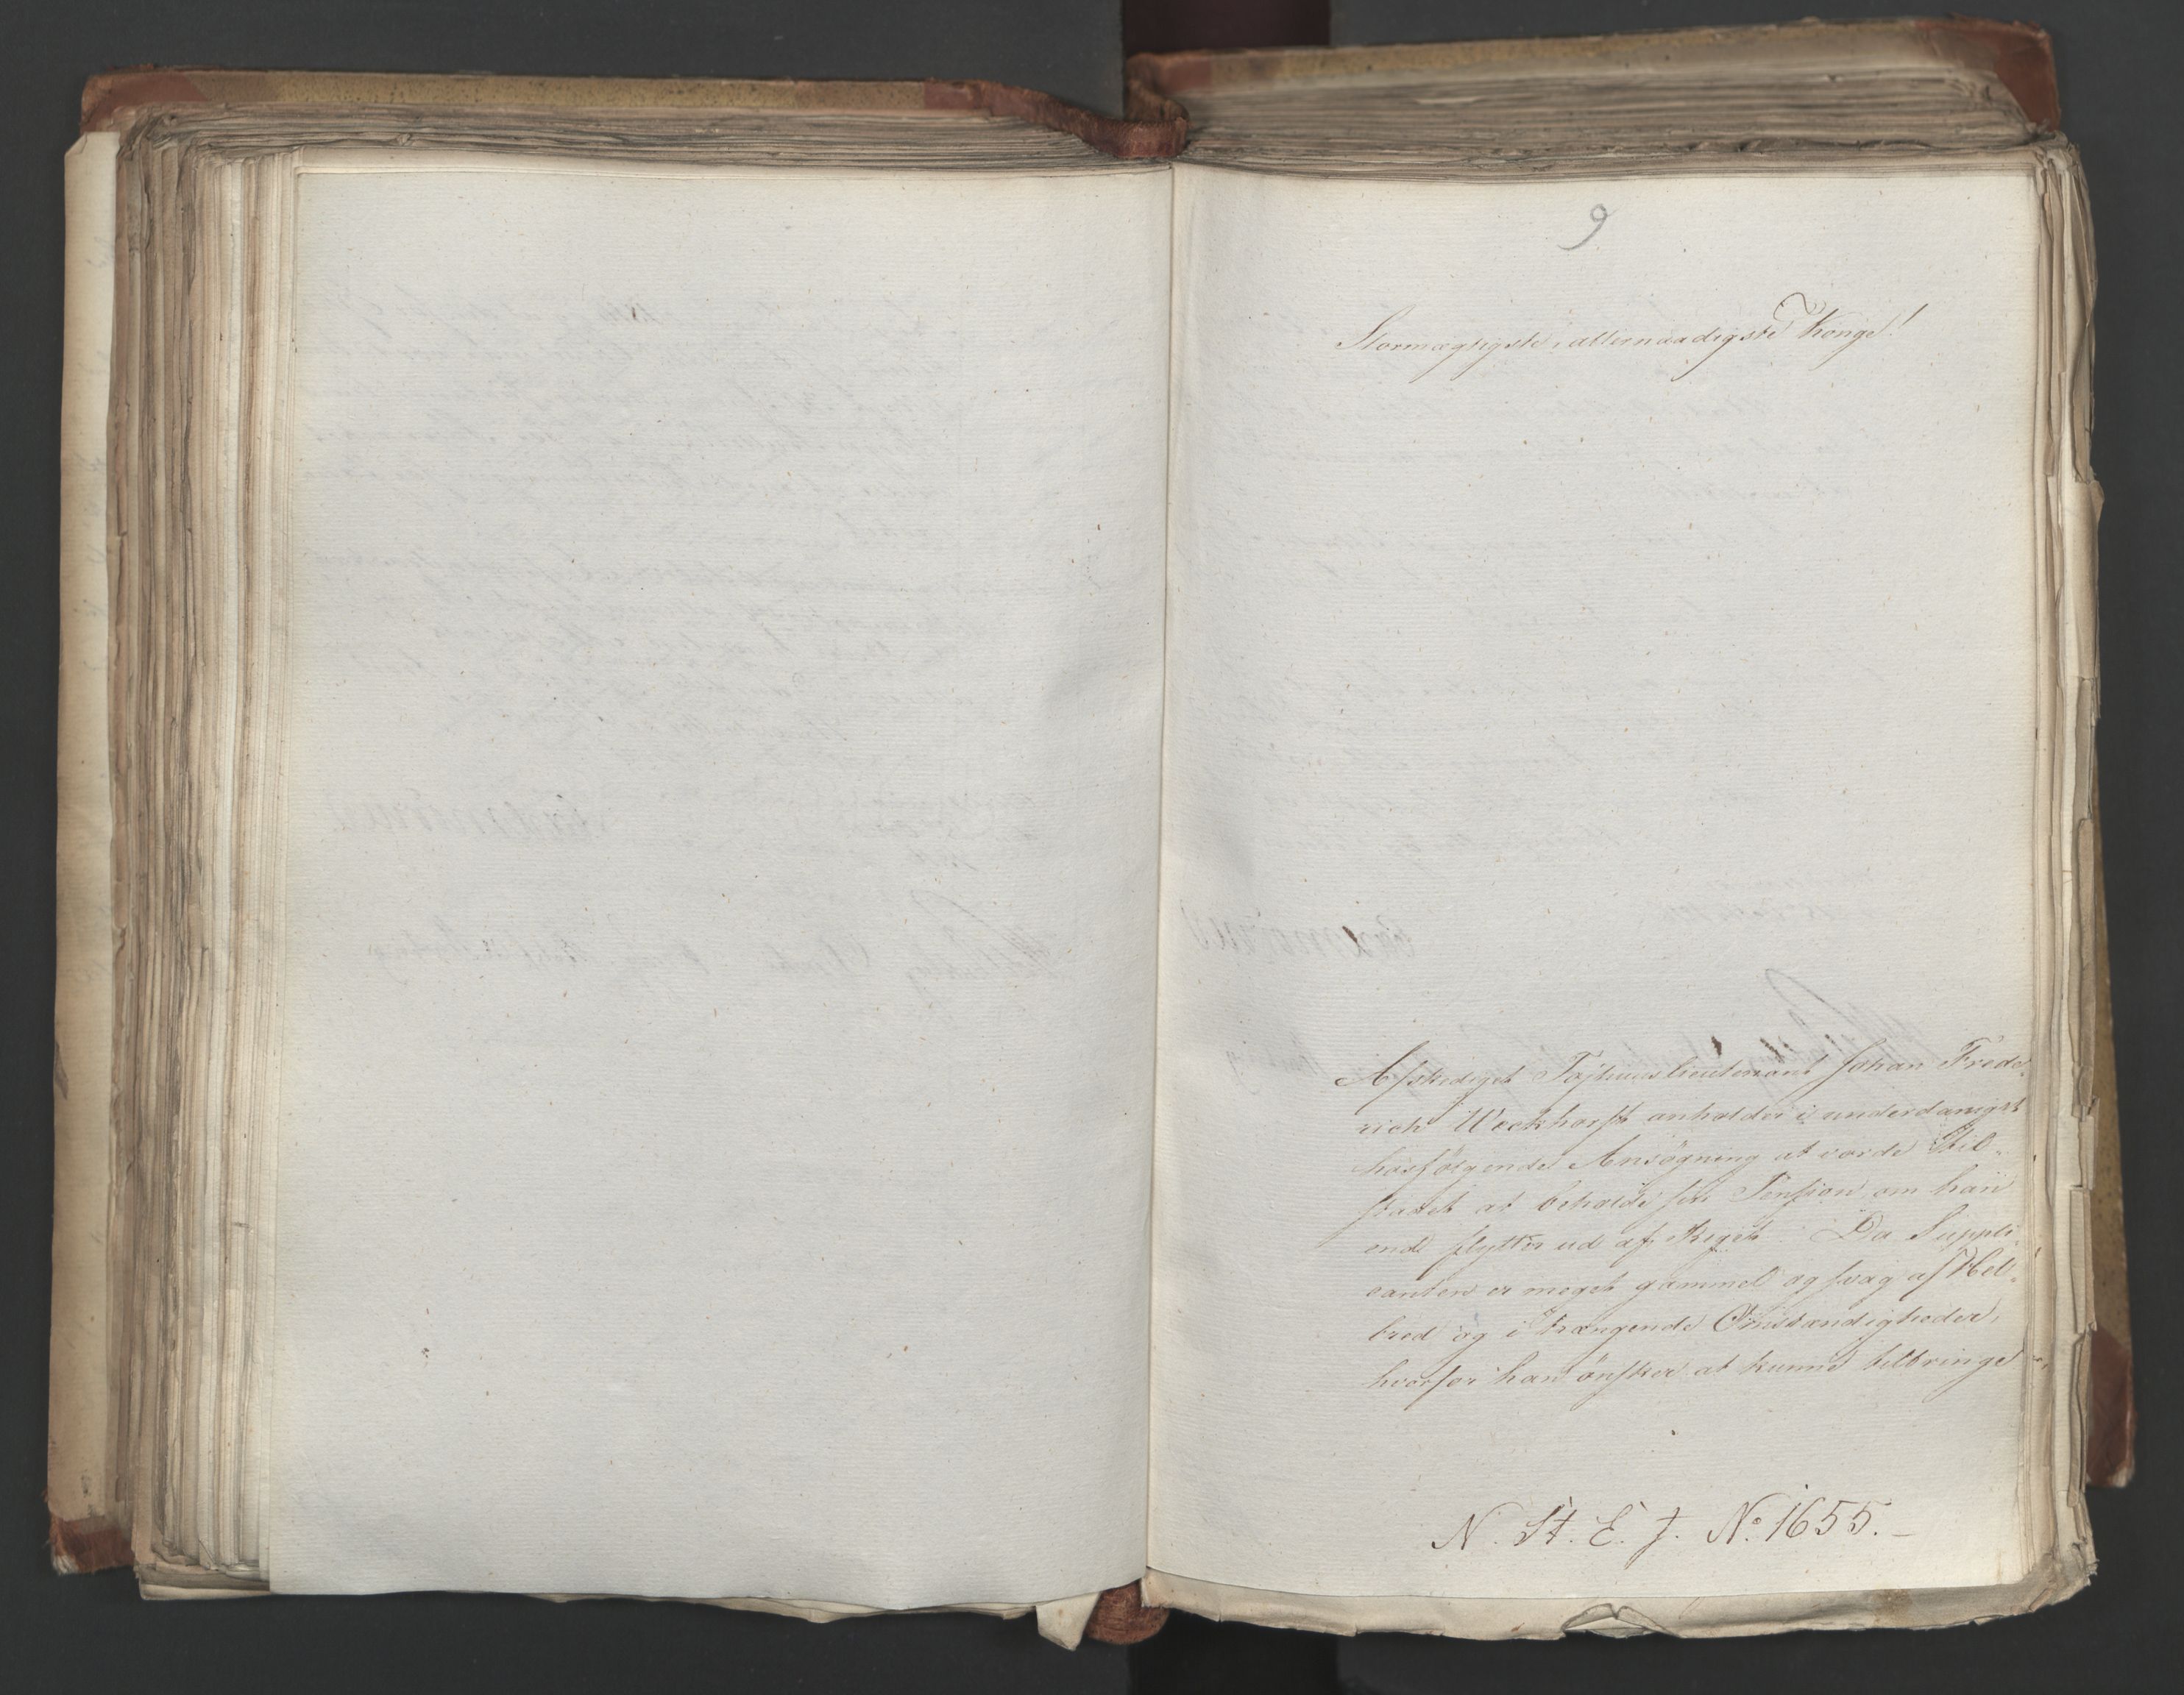 9
Stormægtigste, allernaadigste Konge!
Afskediget Tøjhuuslieutenant Johan Frede-
rich Weckhorst anholder i underdanigst
hosfølgende Ansøgning at vorde til-
stadet at beholde sin Pension, om han
end flytter ud af Riget. Da Suppli-
canten er meget gammel og svag af Hel-
bred og i trængende Omstændigheder,
hvorfor han ønsker at kunne tilbringe
N. St. E. J. No. 1655.-